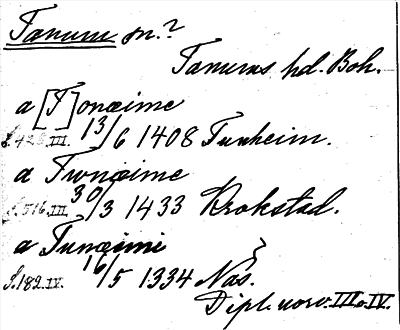 Tanum sn.?
Tanums hd. Boh.
a [T]onæime
S. 423. III. 13/6 1408 Tunheim.
a Twnæime
S. 516. III. 30/3 1433 Krokstad.
a Tunæimi
S. 182. IV. 16/5 1334 Näs.
Dipl. norv. III o. IV.